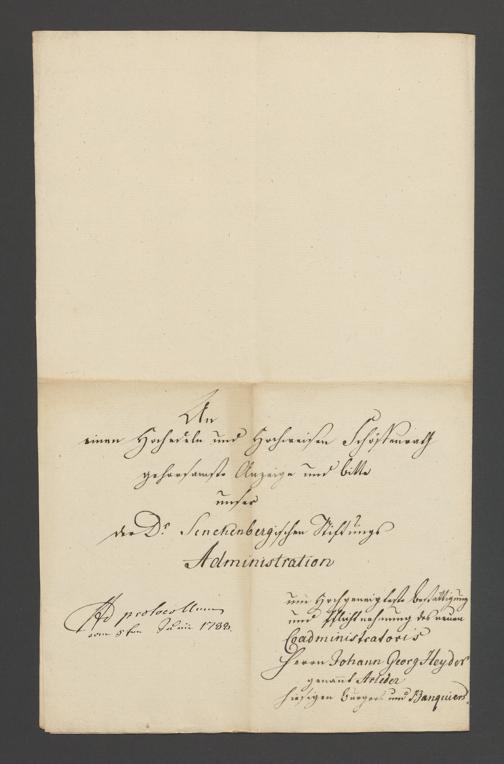 An
einen Hochedeln und Hochweisen Schöffenrath
gehorsamste Anzeige und Bitte
unser
der Dr Senckenbergischen Stiftungs
Administration
Ad protocollum
vom 5ten Junii 1788.
um Hochgeneigteste Bestättigung
und Pflichtnehmung des neuen
Coadministratoris
Herrn Johann Georg Heyder
genannt Arleder
hiesigen Burgers und Banquiers.